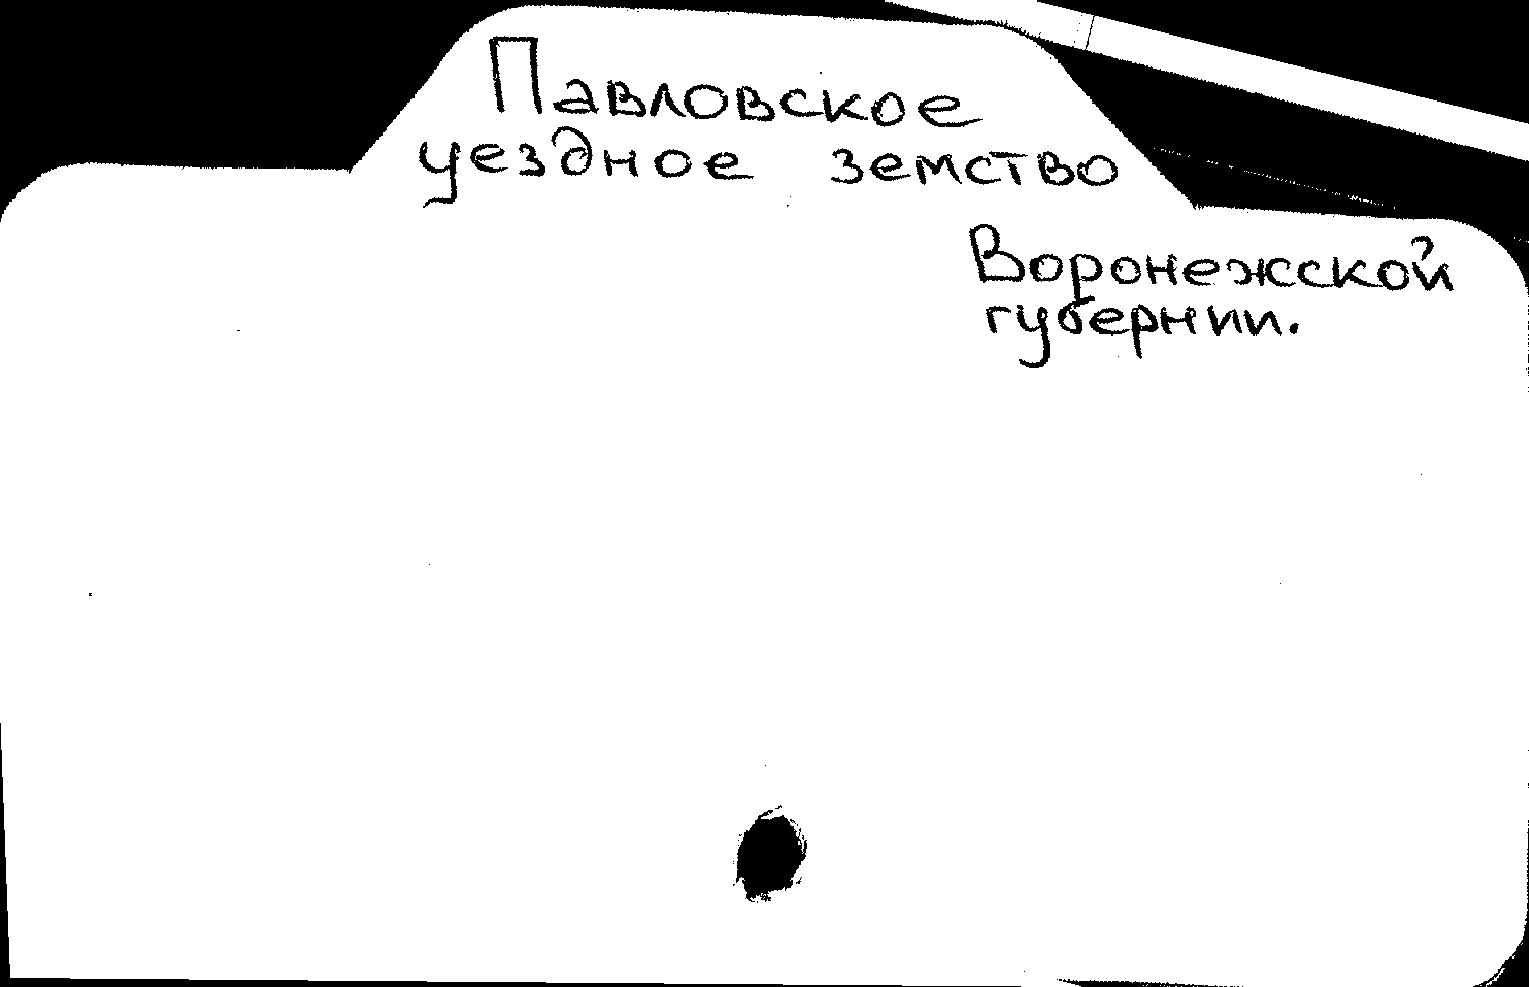 Павловское
уездное земство
Воронежской
губернии.